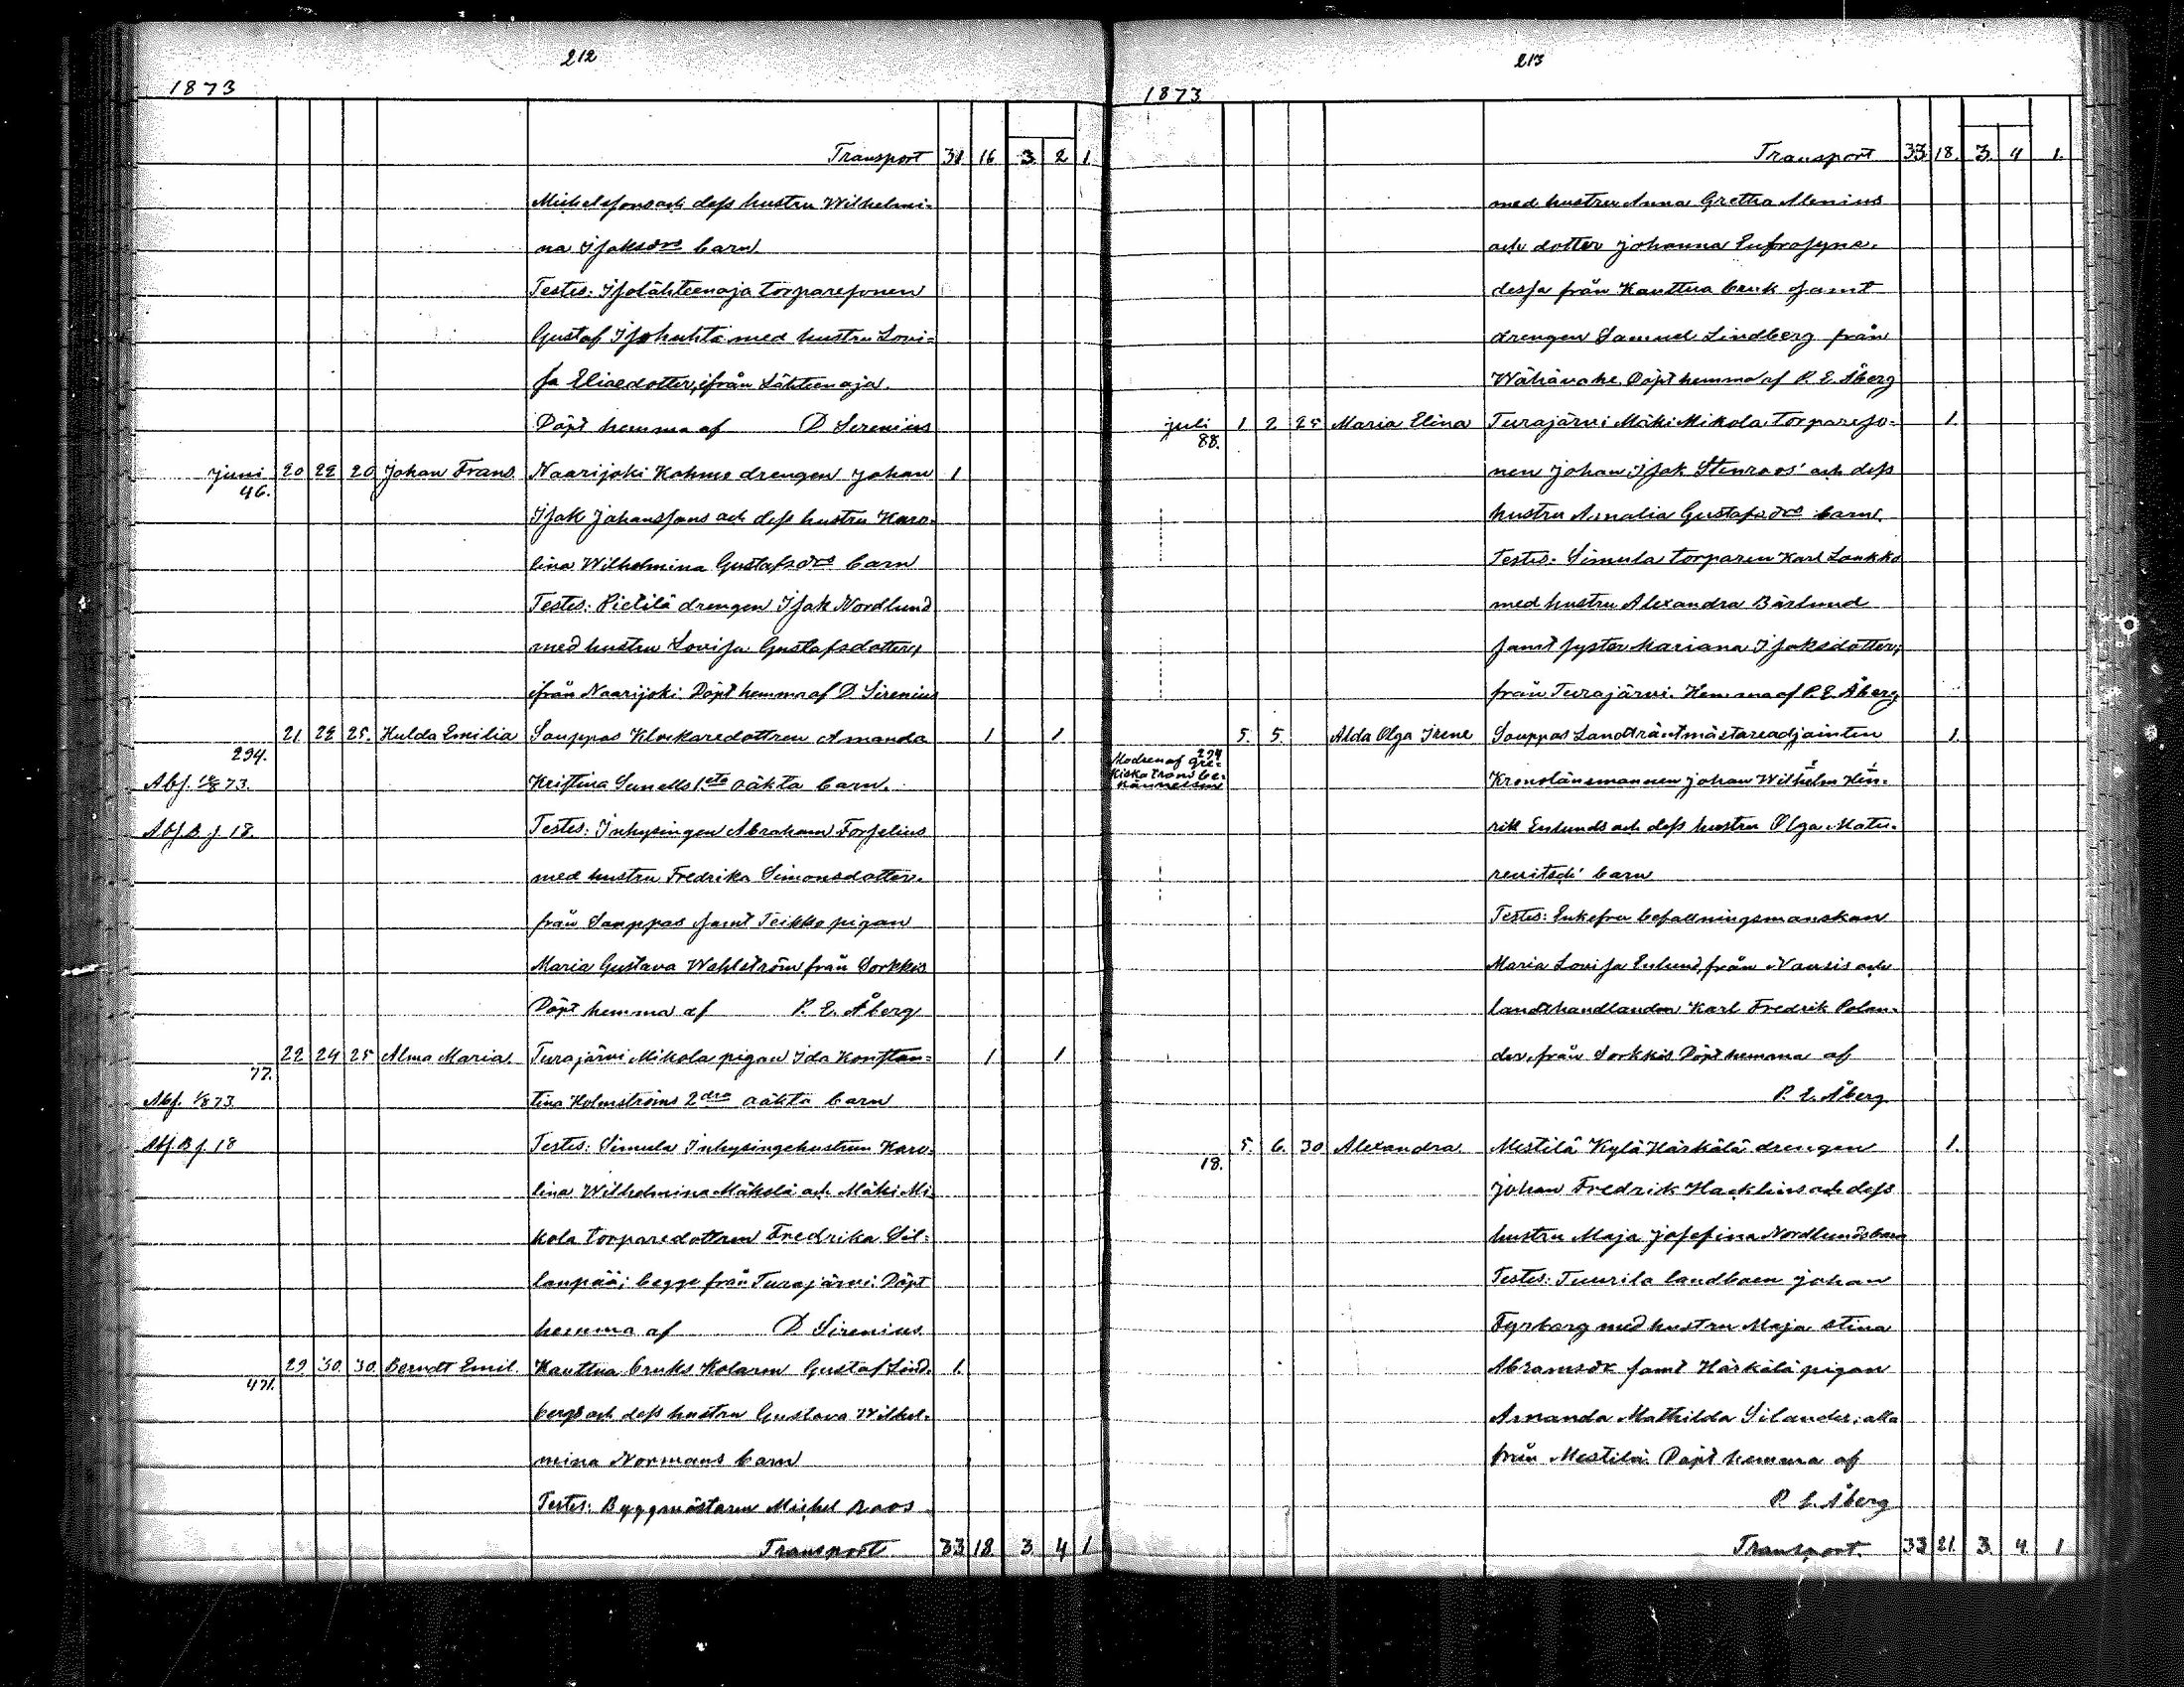 212
1873
Transport 31 16 3 2 1
Michelssons och dess hustru Wilhelmi-
na Isaksdrs barn.
Testes: Isolähteenoja torparesonen
Gustaf Isohuhta med hustru Lovi-
sa Eliaedotter, ifrån Lähteenoja.
Döpt hemma af D Sirenius
juni 20 22 20 Johan Frans. Naarijoki Kahme drengen Johan 1
46.
Isak Johanssons och dess hustru Karo-
lina Wilhelmina Gustafsdrs barn
Testes: Pietilä drengen Isak Nordlund
med hustru Lovisa Gustafsdotter,
ifrån Naarijoki. Döpt hemma af D Sirenius
21 22 25. Hulda Emilia Sauppas Klockaredottren Amanda 1 1
294.
Abs. 73. Kristina Sunells 1sta oäkta barn.
Abs B j 18. Testes: Inhysingen Abraham Forselius
med hustru Fredrika Simonsdotter.
från Sauppas samt Teikko pigan
Maria Gustava Wahlström från Sorkkis
Döpt hemma af P. E. Åberg
22 24 25 Alma Maria. Turajärvi Mikola pigan Ida Konstan- 1 1
77.
Abs. 1/8 73. tina Holmströms 2dra oäkta barn
Abs. B j. 18 Testes: Simula Inhysingehustrun Karo-
lina Wilhelmina Mäkelä och Mäki Mi-
kola torparedottren Fredrika Sil-
lanpää; begge från Turajärvi. Döpt
hemma af D Sirenius
29. 30. 30. Berndt Emil. Kauttua bruks Kolaren Gustaf Lind- 1.
471.
bergs och dess hustru Gustava Wilhel-
mina Normans barn
Testes: Byggmästaren Michel Roos
Transport 33 18. 3. 4 1
213
1873
Transport 33. 18. 3. 4 1.
med hustru Anna Gretha Alenius
och dotter Johanna Eufrosyne.
dessa från Kauttua bruk samt
drengen Samuel Lindberg från
Wähävahe. Döpt hemma af P. E. Åberg
juli 1 2 25 Maria Elina Turajärvi Mäki Mikola torpareso- 1.
88.
nen Johan Isak Stenroos' och dess
hustru Amalia Gustafsdrs barn.
Testes: Simula torparen Karl Laukko
med hustru Alexandra Bärlund
samt syster Mariana Isaksdotter;
från Turajärvi. Hemma af P. E. Åberg
5. 5. Alda Olga Irene Sauppas Landträntmästareadjointen 1.
294
Modren af gre-
kiska trons be-
kännelse
Kronolänsmannen Johan Wilhelm Hen-
rik Enlunds och dess hustru Olga Matu-
rewitsch' barn
Testes: Enkefru befallningsmanskan
Maria Lovisa Enlund, från Nousis och
landthandlanden Karl Fredrik Polan-
der, från Sorkkis Döpt hemma af
P. E. Åberg
5. 6. 30 Alexandra. Mestilä Kylä Härkälä drengen 1.
18.
Johan Fredrik Hacklins och dess
hustru Maja Josefina Nordlunds barn
Testes: Tuurila landboen Johan
Fyrbarg med hustru Maja Stina
Abramsdr samt Härkälä pigan
Amanda Mathilda Silander; alla
från Mestilä. Döpt hemma af
P. E. Åberg
Transport. 33 21. 3. 4. 1